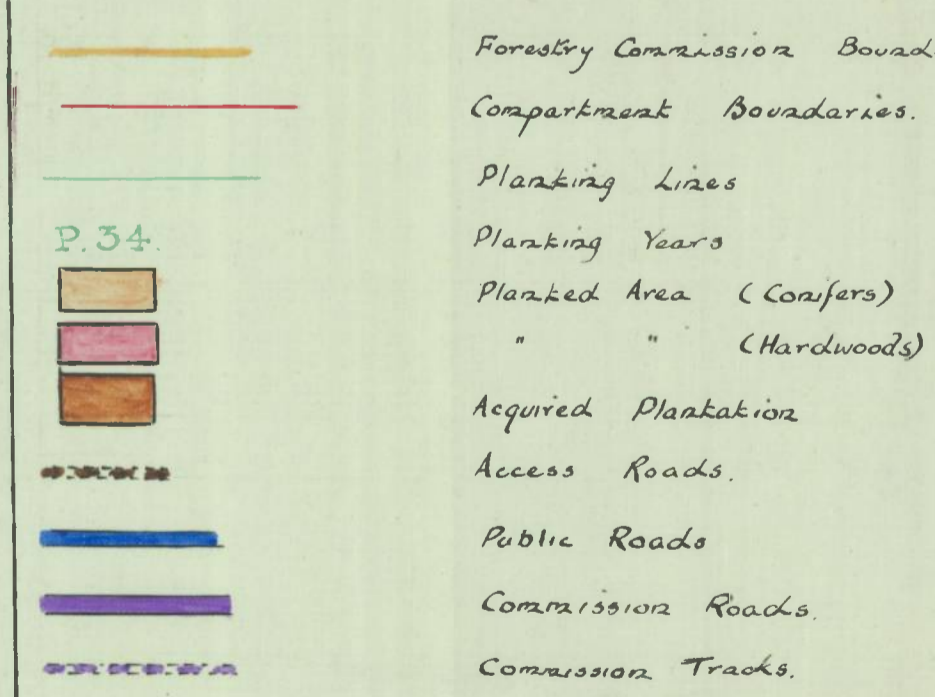 Forestry Commission Bound
Compartment Boundaries.
Planting Lines
P.34. Planting Years
Planted Area (Conifers)
" " (Hardwoods)
Acquired Plantation
Access Roads.
Public Roads
Commission Roads.
Commission Tracks.